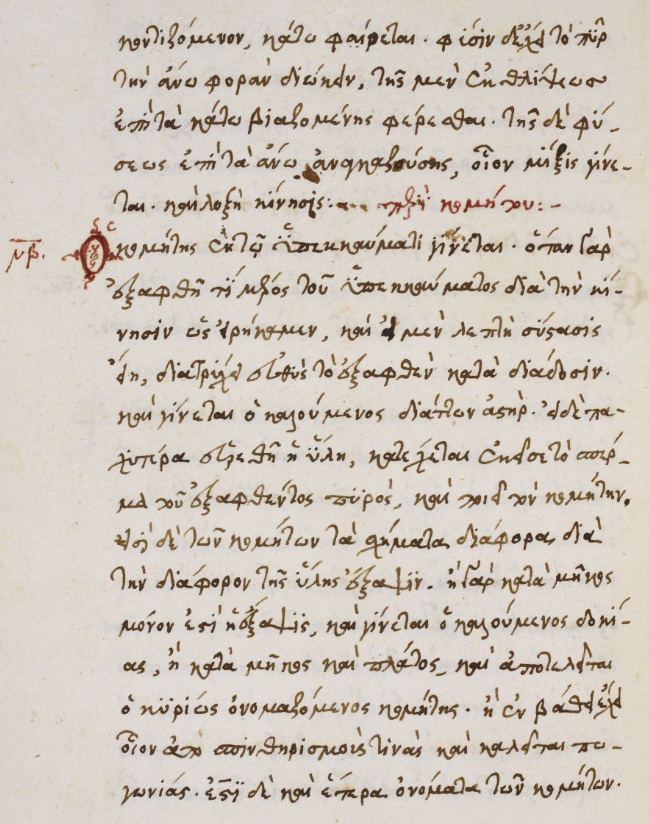 κοντιζόμενον, κάτω φαίρεται. φύσιν δὲ ἔχει τὸ πῦρ
τὴν ἄνω φορὰν διώκειν, τῆς μὲν ἐκθλίψεως
ἐπὶ τὰ κάτω βιαζομένης φέρεσθαι. τῆς δὲ φύ-
σεως ἐπὶ τὰ ἄνω ἀναγκαζούσης, οἷον μίξις γίνε-
ται. καὶ λοξὴ κίνησις: περὶ κομήτου:-
μβ. Ὁ κομήτης ἐν τῷ ὑπεκκαύματι γίνεται. ὅταν γὰρ
ἐξαφθῇ τί μέρος τοῦ ὑπεκκαύματος διὰ τὴν κί-
νησιν ὡς εἰρήκαμεν, καὶ μὲν λεπτὴ σύστασις
εἴη, διατρέχει εὐθὺς τὸ ἐξαφθὲν κατὰ διάδοσιν.
καὶ γίνεται ὁ καλούμενος διάττων ἀστήρ. εἰ δὲ πα-
χυτέρα εὑρεθῇ ἡ ὕλη, κατέχεται ἐκεῖσε τὸ σπέρ-
μα τοῦ ἐξαφθέντος πυρὸς, καὶ ποιεῖ τὸν κομήτην.
εἰσὶ δὲ τῶν κομήτων τὰ σχήματα διάφορα διὰ
τὴν διάφορον τῆς ὕλης ἔξαψιν. ἢ γὰρ κατὰ μῆκος
μόνον ἐστὶ ἡ ἔξαψις, καὶ γίνεται ὁ καλούμενος δοκί-
ας, ἢ κατὰ μῆκος καὶ πλάτος, καὶ ἀποτελεῖται
ὁ κυρίως ὀνομαζόμενος κομήτης. ἢ ἐν βάθει ἔχει
οἷον ἀπο σπινθηρισμοὺς τινὰς καὶ καλεῖται πω-
γωνίας. ἐστὶ δὲ καὶ ἕτερα ὀνόματα τῶν κομήτων.